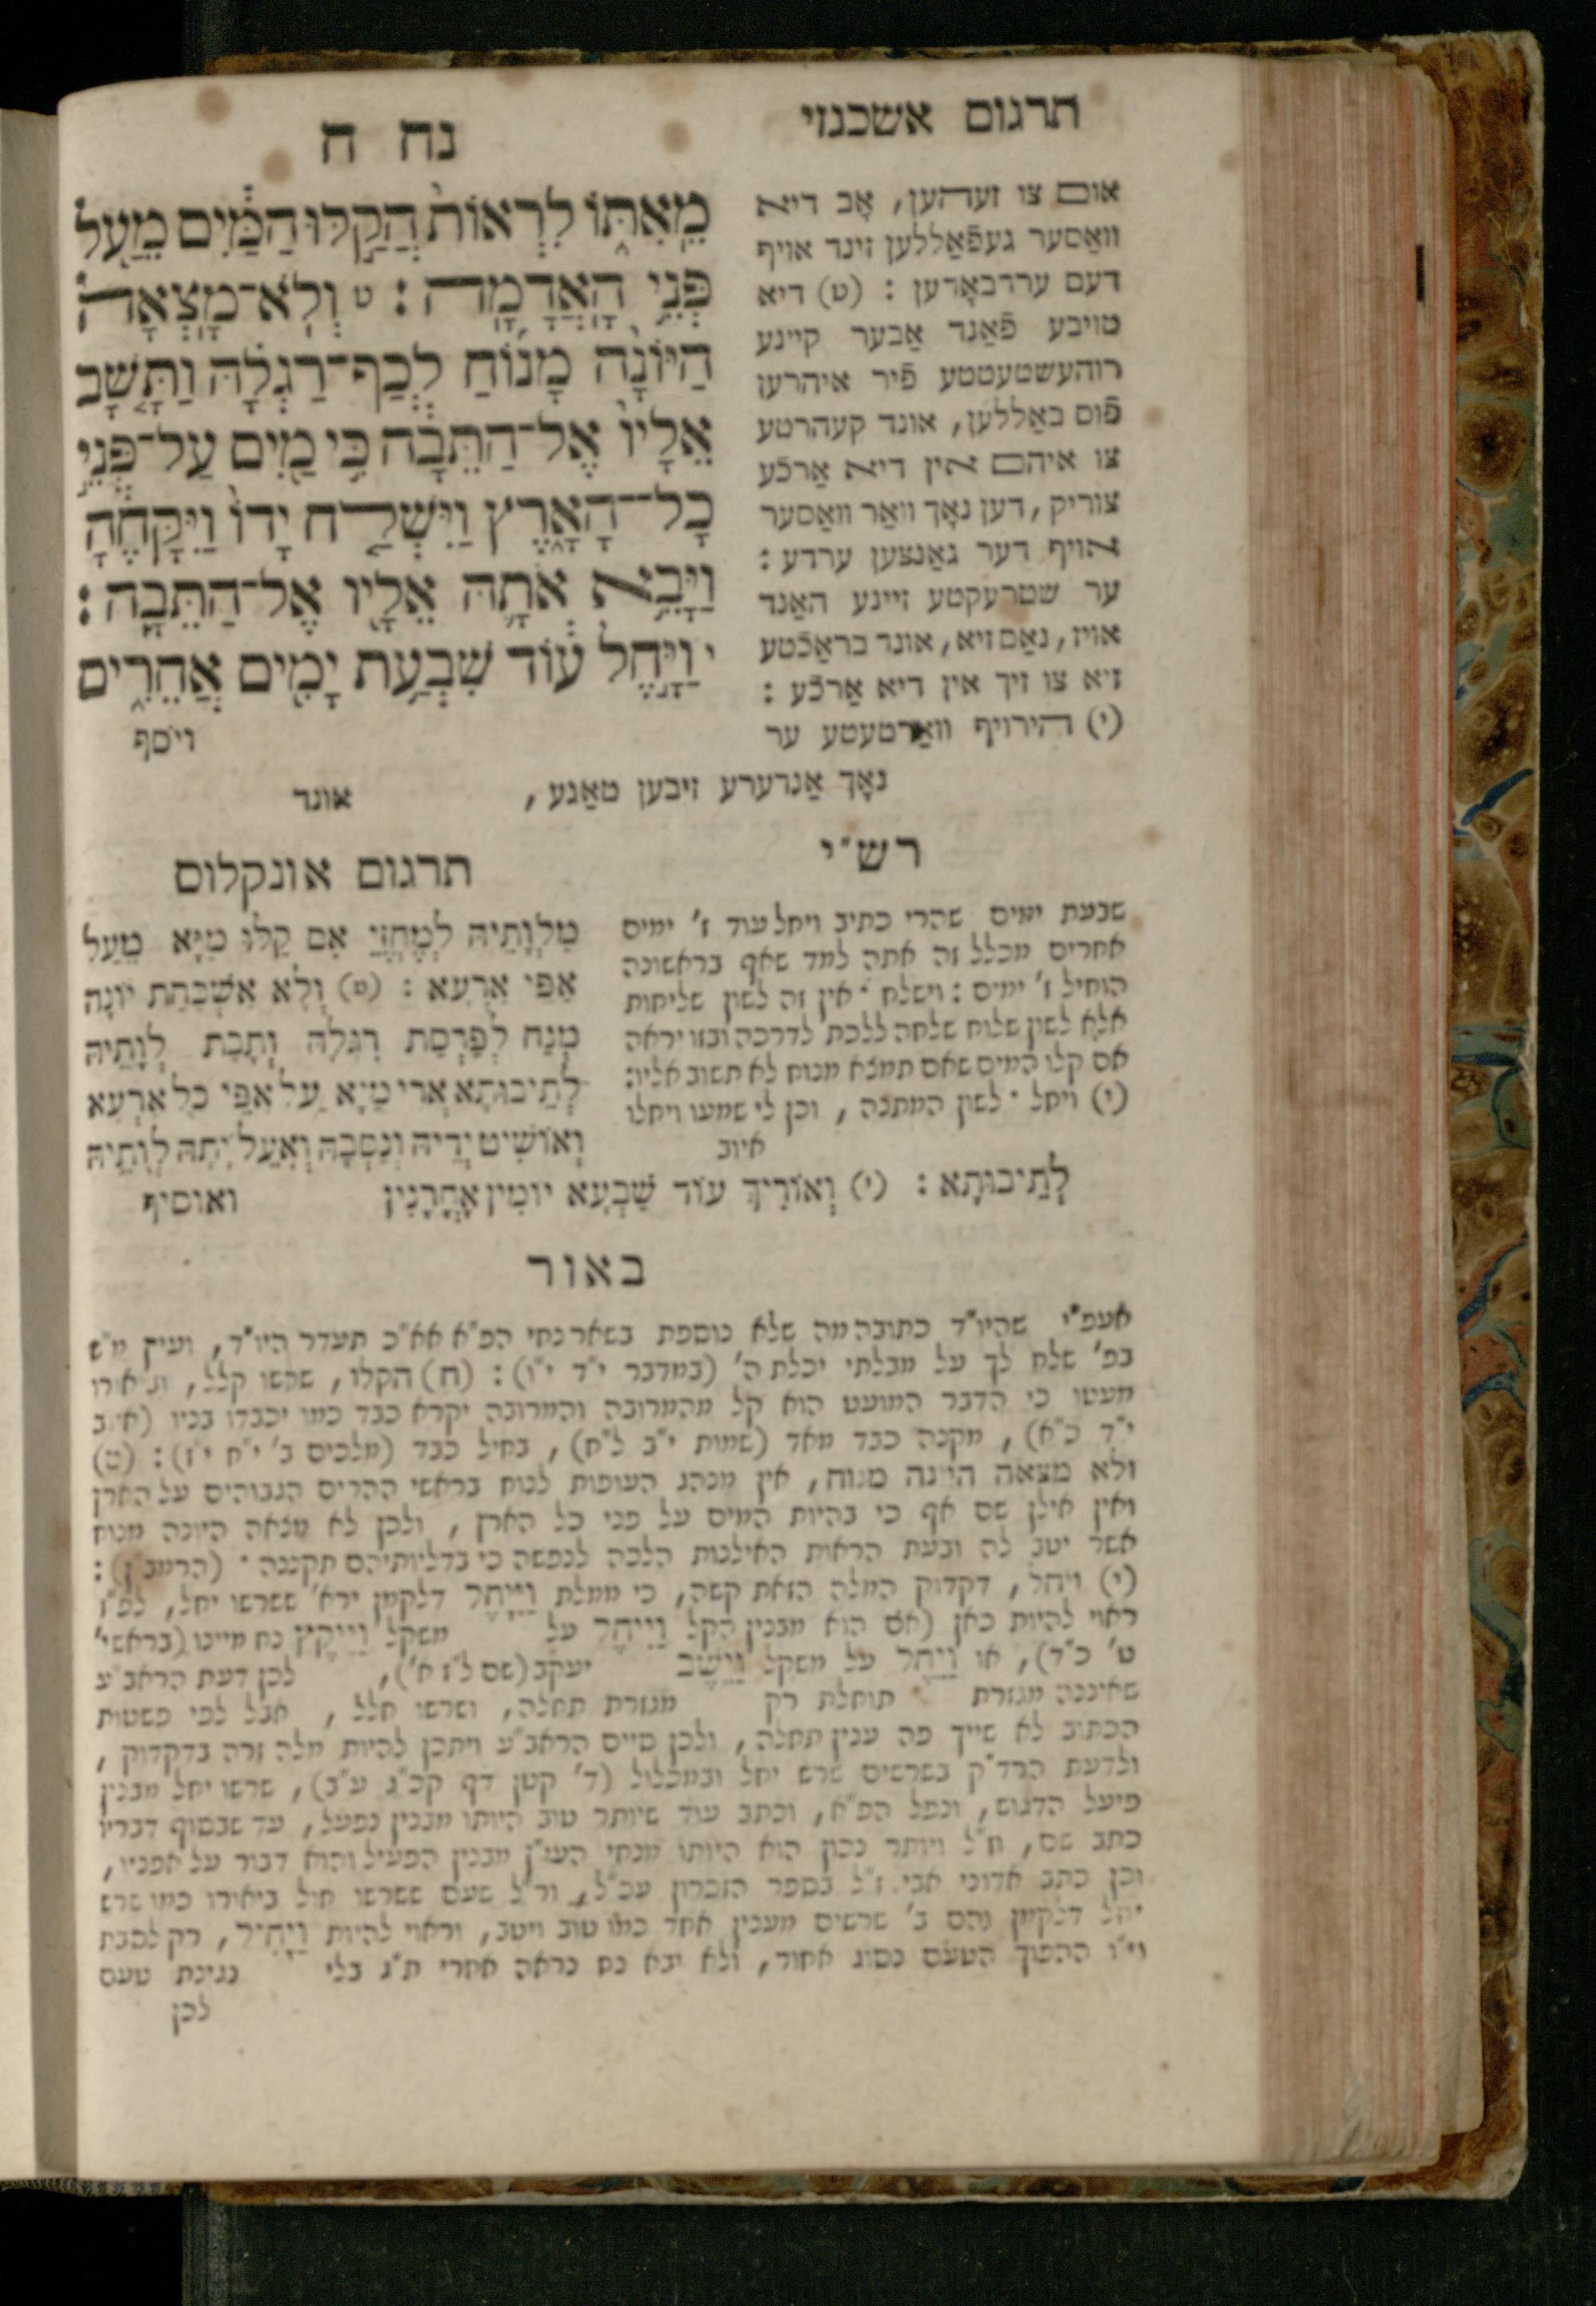 תרגום אשכנזי
נח ח
מֵֽאִתּ֑וֹ לִרְא֙וֹת֙ הֲקַ֣לּוּ הַמַּ֔יִם מֵעַ֖ל
פְּנֵ֥י הָֽאֲדָמָֽה׃ ט וְלֹֽא־מָצְאָה֩
הַיּוֹנָ֨ה מָנ֜וֹחַ לְכַף־רַגְלָ֗הּ וַתָּ֤שָׁב
אֵלָיו֙ אֶל־הַתֵּבָ֔ה כִּי־מַ֖יִם עַל־פְּנֵ֣י
כָל־הָאָ֑רֶץ וַיִּשְׁלַ֤ח יָדוֹ֙ וַיִּקָּחֶ֔הָ
וַיָּבֵ֥א אֹתָ֛הּ אֵלָ֖יו אֶל־הַתֵּבָֽה׃
י וַיָּ֣חֶל ע֔וֹד שִׁבְעַ֥ת יָמִ֖ים אֲחֵרִ֑ים
ויסף
אום צו זעהען, אָב דיא
וואַסער געפֿאַללען זינד אויף
דעם ערדבאָדען : (ט) דיא
טויבע פֿאַנד אַבער קיינע
רוהעשטעטטע פֿיר איהרען
פֿוס באַללען, אונד קעהרטע
צו איהם אין דיא אַרכֿע
צוריק, דען נאָך וואַר וואַסער
אויף דער גאַנצען ערדע :
ער שטרעקטע זיינע האַנד
אויז, נאַם זיא, אונד בראַכֿטע
זיא צו זיך אין דיא אַרכֿע :
(י) הירויף וואַרטעטע ער
נאָך אַנדערע זיבען טאַגע,
אונד
רש"י
שבעת ימים שהרי כתיב ויחל עוד ז' ימים
אחרים מכלל זה אתה למד שאף בראשונה
הוחיל ז' ימים : וישלח · אין זה לשון שליחות
אלא לשון שלוח שלחה ללכת לדרכה ובזו יראה
אם קלו המים שאם תמצא מנוח לא תשוב אליו:
(י) ויחל · לשון המתנה, וכן לי שמעו ויחלו
איוב
תרגום אונקלוס
מִלְוָתֵיהּ לְמֶחֱזֵי אִם קַלּוּ מַיָּא מֵעַל
אַפֵּי אַרְעָא : (ט) וְלָא אַשְׁכַּחַת יוֹנָה
מְנַח לְפַרְסַת רִגְלַהּ וְתָבַת לְוָתֵיהּ
לְתֵיבוּתָא אֲרֵי מַיָּא עַל אַפֵּי כָל אַרְעָא
וְאוֹשִׁיט יְדֵיהּ וְנַסְבָהּ וְאָעֵל יָתַהּ לְוָתֵיהּ
לְתֵיבוּתָא : (י) וְאוֹרִיךְ עוֹד שִׁבְעָא יוֹמִין אָחֳרָנִין
ואוסיף
באור
אעפ"י שהיו"ד כתובה מה שלא נוספת בשאר נחי הפ"א אא"כ תעדר היו"ד, ועיין מ"ש
בפ' שלח לך על מבלתי יכלת ה' (במדבר י"ד י"ו) : (ח) הקלו, שרשו קלל,
מעטו כי הדבר המועט הוא קל מהמרובה והמרובה יקרא כבד כמו יכבדו בניו (איוב
י"ד כ"א), מקנה כבד מאד (שמות י"ב ל"ח), בחיל כבד (מלכים ב' י"ח י"ז) : (ט)
ולא מצאה היונה מנוח, אין מנהג העופות לנוח בראשי ההרים הגבוהים על הארץ
ואין אילן שם אף כי בהיות המים על פני כל הארץ, ולכן לא מצאה היונה מנוח
אשר יטב לה ובעת הראות האילנות הלכה לנפשה כי בדליותיהם תקננה · (הרמב"ן) :
(י) ויחל, דקדוק המלה הזאת קשה, כי ממלת וַיִּיָּחֶל דלקמן ירא' ששרשו יחל, לפ"ז
ראוי להיות כאן (אם הוא מבנין הקל וַיִּיחֶל על משקל וַיִּיקֶץ נח מיינו (בראשי'
ט' כ"ד), או וַיֵּחֶל על משקל וַיֵּשֶׁב יעקב (שם ל"ז א'), לכן דעת הראב"ע
שאיננה מגזרת תוחלת רק מגזרת תחלה, ושרשו חלל, אבל לפי פשטות
הכתוב לא שייך פה ענין תחלה, ולכן סיים הראב"ע ויתכן להיות מלה זרה בדקדוק,
ולדעת הרד"ק בשרשים שרש יחל ובמכלול (ד' קטן דף קכ"ג ע"ב), שרשו יחל מבנין
פיעל הדגוש, ונפל הפ"א, וכתב עוד שיותר טוב היותו מבנין נפעל, עד שבסוף דבריו
כתב שם, וז"ל ויותר נכון הוא היותו מנחי העי"ן מבנין הפעיל והוא דבור על אפניו,
וכן כתב אדוני אבי ז"ל בספר הזכרון עכ"ל, ור"ל שעם ששרשו חול ביאורו כמו שרש
יחל דלקמן והם ב' שרשים מענין אחד כמו טוב ויטב, וראוי להיות וַיָּחִיל, רק לסבת
וי"ו ההפוך הטעם נסוג אחור, ולא יבא נח נראה אחרי ת"ג בלי נגינת טעם
לכן